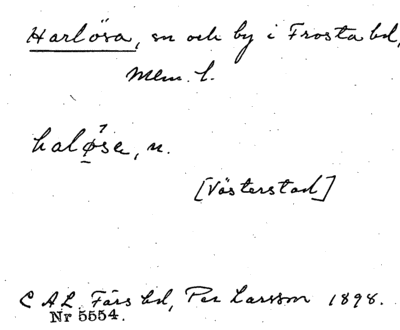 Harlösa, sn och by i Frosta hd,
Mlm. l.
haløsa, n.
[Västerstad]
C A L. Färs hd, Per Larsson 1898.
Nr 5554.